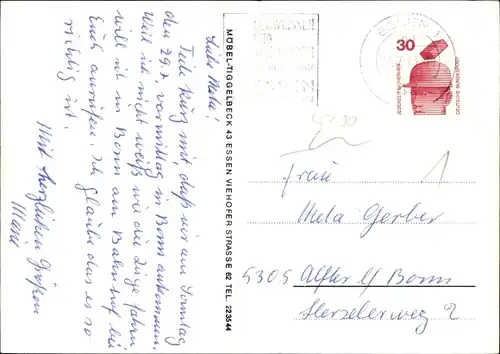 Liebe Meta!
Teile kurz mit, daß wir am Sonntag
den 29.7. vormittag in Bonn ankommen.
Weil ich nicht weiß wie die Züge fahren
will ich in Bonn am Bahnhof bei
Euch anrufen. Ich glaube das es so
richtig ist.
Mit herzlichen Grüßen
Maria
MÖBEL-TIGGELBECK 43 ESSEN VIEHOFER STRASSE 62 TEL. 223544
ESSEN 1
30
JEDERZEIT SICHERHEIT
DEUTSCHE BUNDESPOST
Frau
Meta Gerber
5305 Alfter b/ Bonn
Herselerweg 2